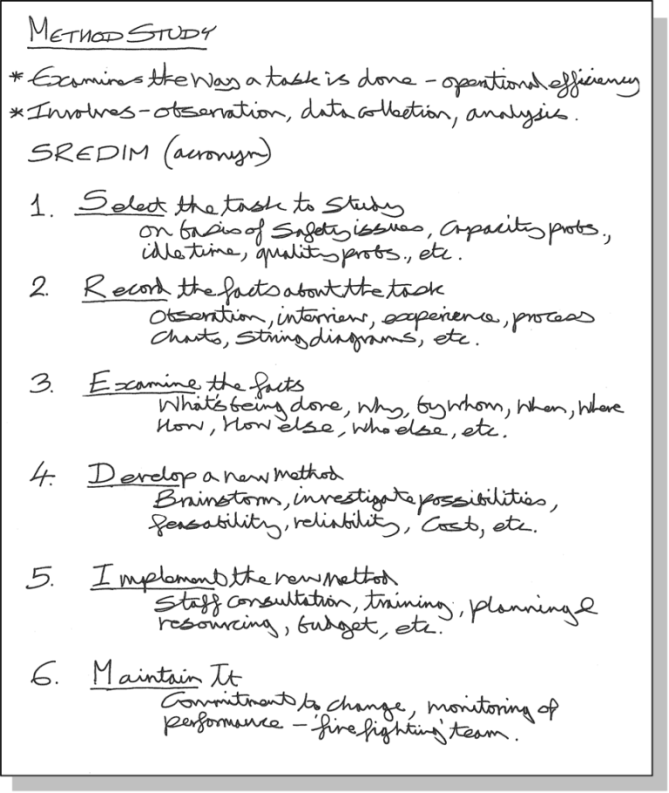 METHOD STUDY
* Examines the way a task is done - operational efficiency
* Involves - observation, data collection, analysis.
SREDIM (acronym)
1. Select the task to study
on basis of safety issues, capacity probs.,
idle time, quality probs., etc.
2. Record the facts about the task
Obseration, interview, experience, process
charts, string diagrams, etc.
3. Examine the facts
What's being done, why, by whom, when, where
How, How else, who else, etc.
4. Develop a new method
Brainstorm, investigate possibilities,
feasability, reliability, cost, etc.
5. Implement the new method
Staff consultation, training, planning &
resourcing, budget, etc.
6. Maintain It
Commitment to change, monitoring of
performance - 'fire fighting' team.